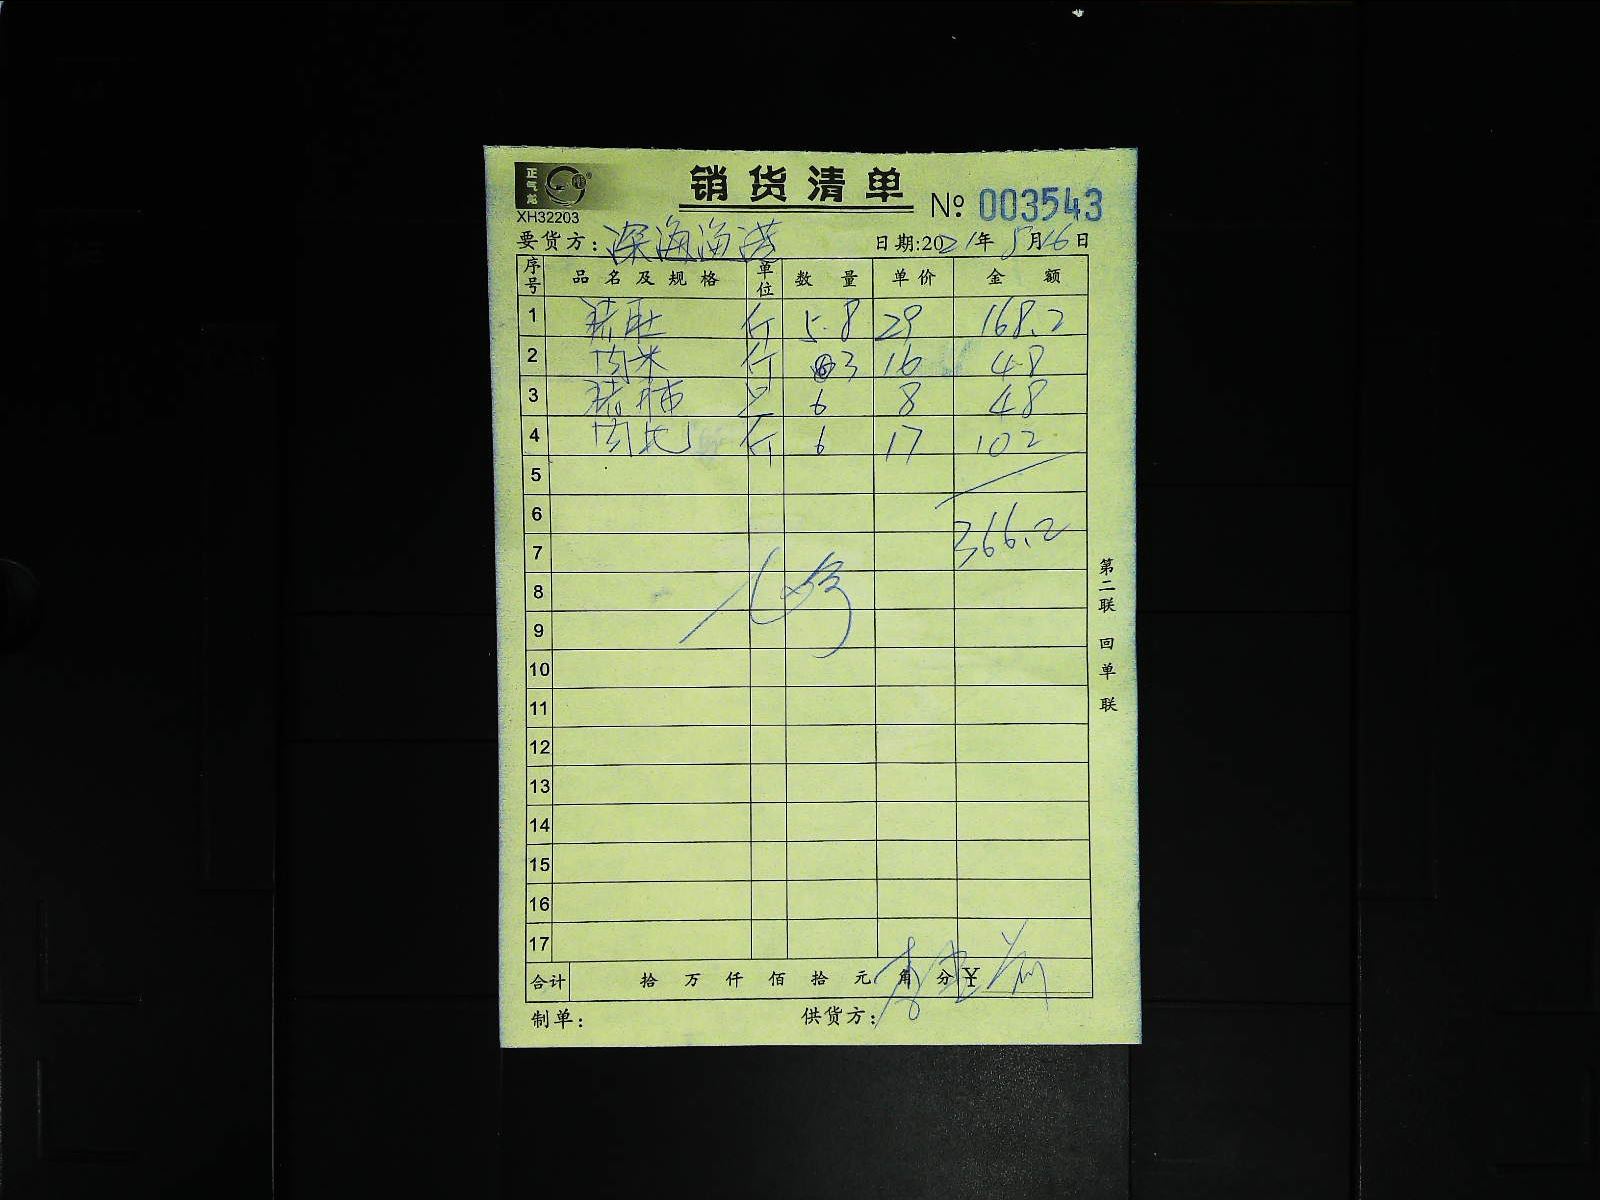 正气龙
XH32203
销货清单 № 003543
要货方: 深海渔港 日期:2021年8月16日
序号 品名及规格 单位 数量 单价 金额
1 猪肚 斤 5.8 29 168.2
2 肉米 斤 3 16 48
3 猪肺 只 6 8 48
4 肉北 斤 6 17 102
5
6 366.2
7
8
9
10
11
12
13
14
15
16
17
合计 拾 万 仟 佰 拾 元 角 分 ¥
制单: 供货方:
第二联 回单联